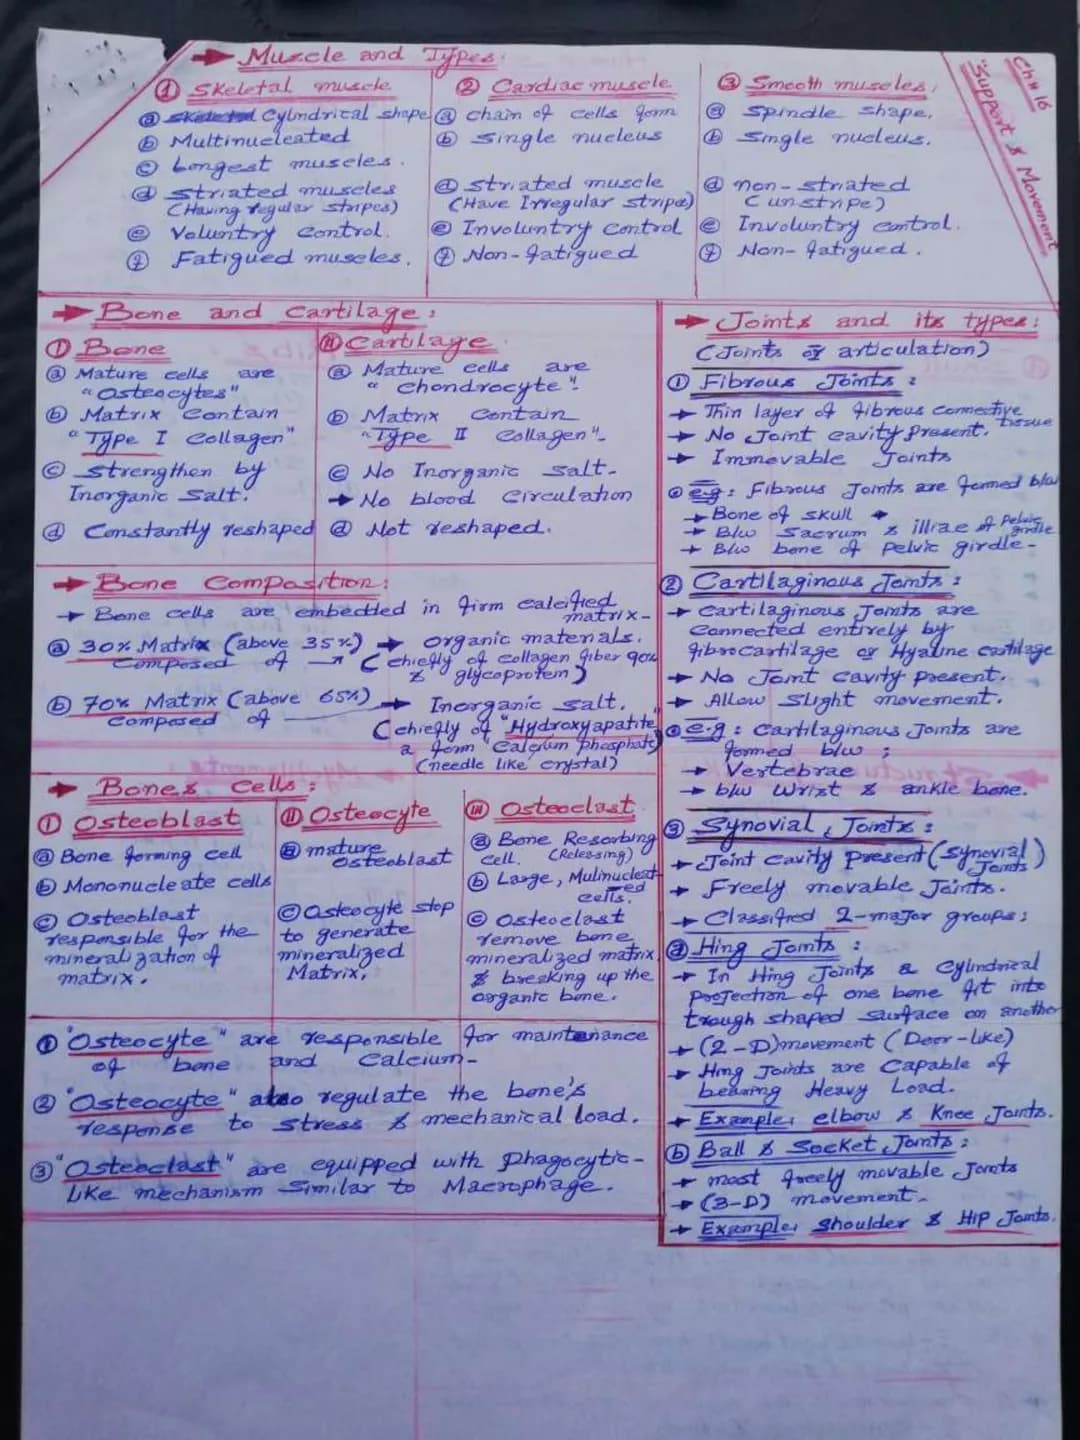 Ch# 16
"Support & Movement"
→ Muscle and Types:
① Skeletal muscle
ⓐ Cylindrical shape
ⓑ Multinucleated
ⓒ Longest muscles.
ⓓ Striated muscles
(Having regular stripes)
ⓔ Voluntry Control.
ⓕ Fatigued muscles.
② Cardiac muscle
ⓐ chain of cells form
ⓑ Single nucleus
ⓓ Striated muscle
(Have Irregular stripe)
ⓔ Involuntry Control
ⓕ Non-fatigued
③ Smooth muscles:
ⓐ Spindle shape.
ⓑ Single nucleus.
ⓓ non-striated
(unstripe)
ⓔ Involuntry control.
ⓕ Non-fatigued.
→ Bone and Cartilage:
① Bone
ⓐ Mature cells are
"Osteocytes"
ⓑ Matrix Contain
"Type I Collagen"
ⓒ Strengthen by
Inorganic Salt.
ⓓ Constantly reshaped
ⓘⓘ Cartilage
ⓐ Mature cells are
"Chondrocyte".
ⓑ Matrix Contain
"Type II Collagen".
ⓒ No Inorganic Salt.
→ No blood Circulation
ⓓ Not reshaped.
→ Bone Composition:
→ Bone cells are embedded in firm calcified
matrix-
ⓐ 30% Matrix (above 35%) → organic materials.
Composed of → (chiefly of collagen fiber 90%
& glycoprotein)
ⓑ 70% Matrix (above 65%) → Inorganic Salt.
Composed of (chiefly of "Hydroxyapatite"
a form "Calcium phosphate)
(needle like crystal)
→ Bones Cells:
① Osteoblast
ⓐ Bone forming cell
ⓑ Mononucleate cells
ⓒ Osteoblast
responsible for the
mineralization of
matrix.
ⓘⓘ Osteocyte
ⓐ mature
osteoblast
ⓒ Osteocyte stop
to generate
mineralized
Matrix.
ⓘⓘⓘ Osteoclast
ⓐ Bone Resorbing
cell. (Releasing)
ⓑ Large, Mulinucleated
cells.
ⓒ Osteoclast
remove bone
mineralized matrix
& breaking up the
organic bone.
① "Osteocyte" are responsible for maintenance
of bone and Calcium-
② "Osteocyte" also regulate the bone's
response to stress & mechanical load.
③ "Osteoclast" are equipped with Phagocytic-
like mechanism similar to Macrophage.
→ Joints and its types:
(Joints or articulation)
① Fibrous Joints:
→ Thin layer of fibrous connective
tissue
→ No Joint cavity present.
→ Immovable Joints
⊙ e.g: Fibrous Joints are formed b/w
→ Bone of skull
→ B/w Sacrum & illiac of Pelvic
girdle
→ B/w bone of pelvic girdle-
② Cartilaginous Joints:
→ Cartilaginous Joints are
Connected entirely by
fibrocartilage or Hyaline cartilage
→ No Joint cavity present.
→ Allow Slight movement.
⊙ e.g: Cartilaginous Joints are
formed b/w ;
→ Vertebrae
→ b/w Wrist & ankle bone.
③ Synovial Joints:
→ Joint cavity Present (Synovial
Joints)
→ Freely movable Joints.
→ Classified 2-major groups:
ⓐ Hing Joints:
→ In Hing Joints a Cylindrical
projection of one bone fit into
trough shaped surface on another
→ (2-D) movement (Door-like)
→ Hing Joints are Capable of
bearing Heavy Load.
→ Example: elbow & Knee Joints.
ⓑ Ball & Socket Joints:
→ most freely movable Joints
→ (3-D) movement.
→ Example: Shoulder & Hip Joints.